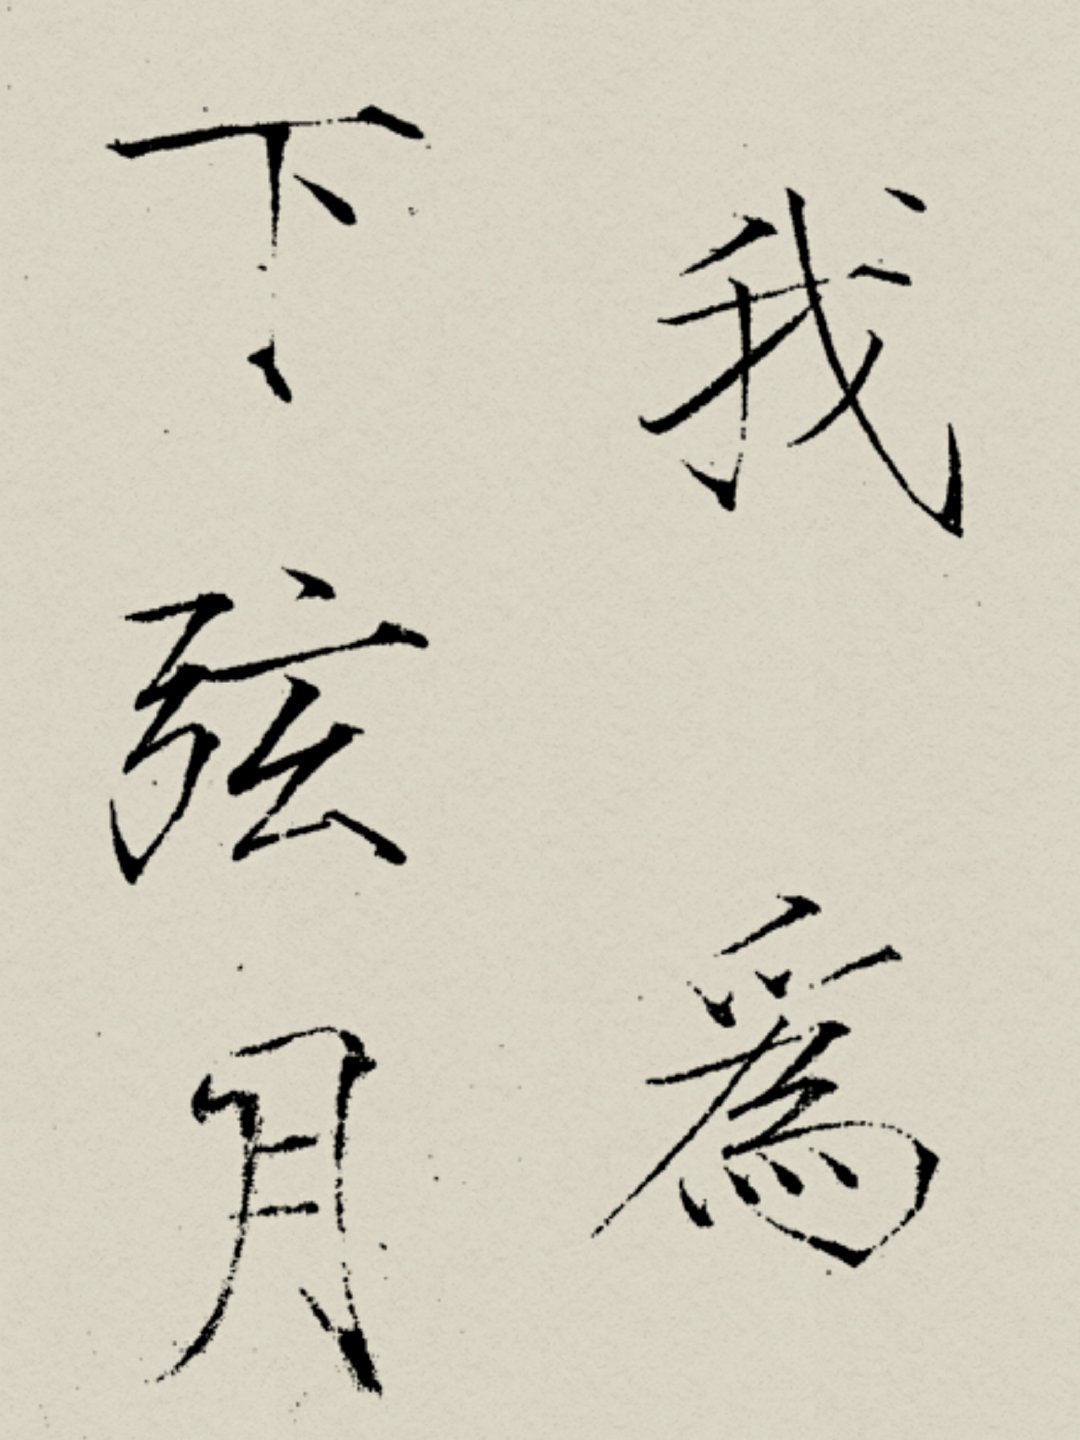 我為
下弦月